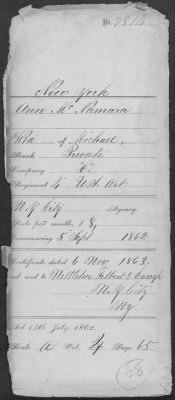 No. 7814
New York
Ann Mc Namara
Wid of Michael,
Rank Private
Company
Regiment 4 U.S. Art
N.Y. City Agency.
Rate per month, $8,
Commencing 5 Sept 1862
Certificate dated 6 Nov. 1863.
and sent to Nettleton Gilbert & Camp
N.Y. City
N.Y.
Act 14th July, 1862.
Book A Vol. 4 Page 65
28